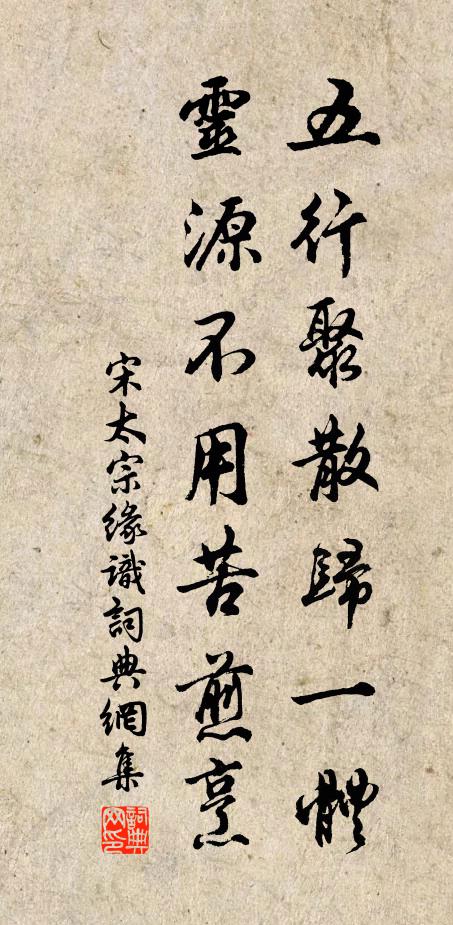 五行聚散歸一體
靈源不用苦煎烹
宋太宗緣識詞典網集
詞典網印